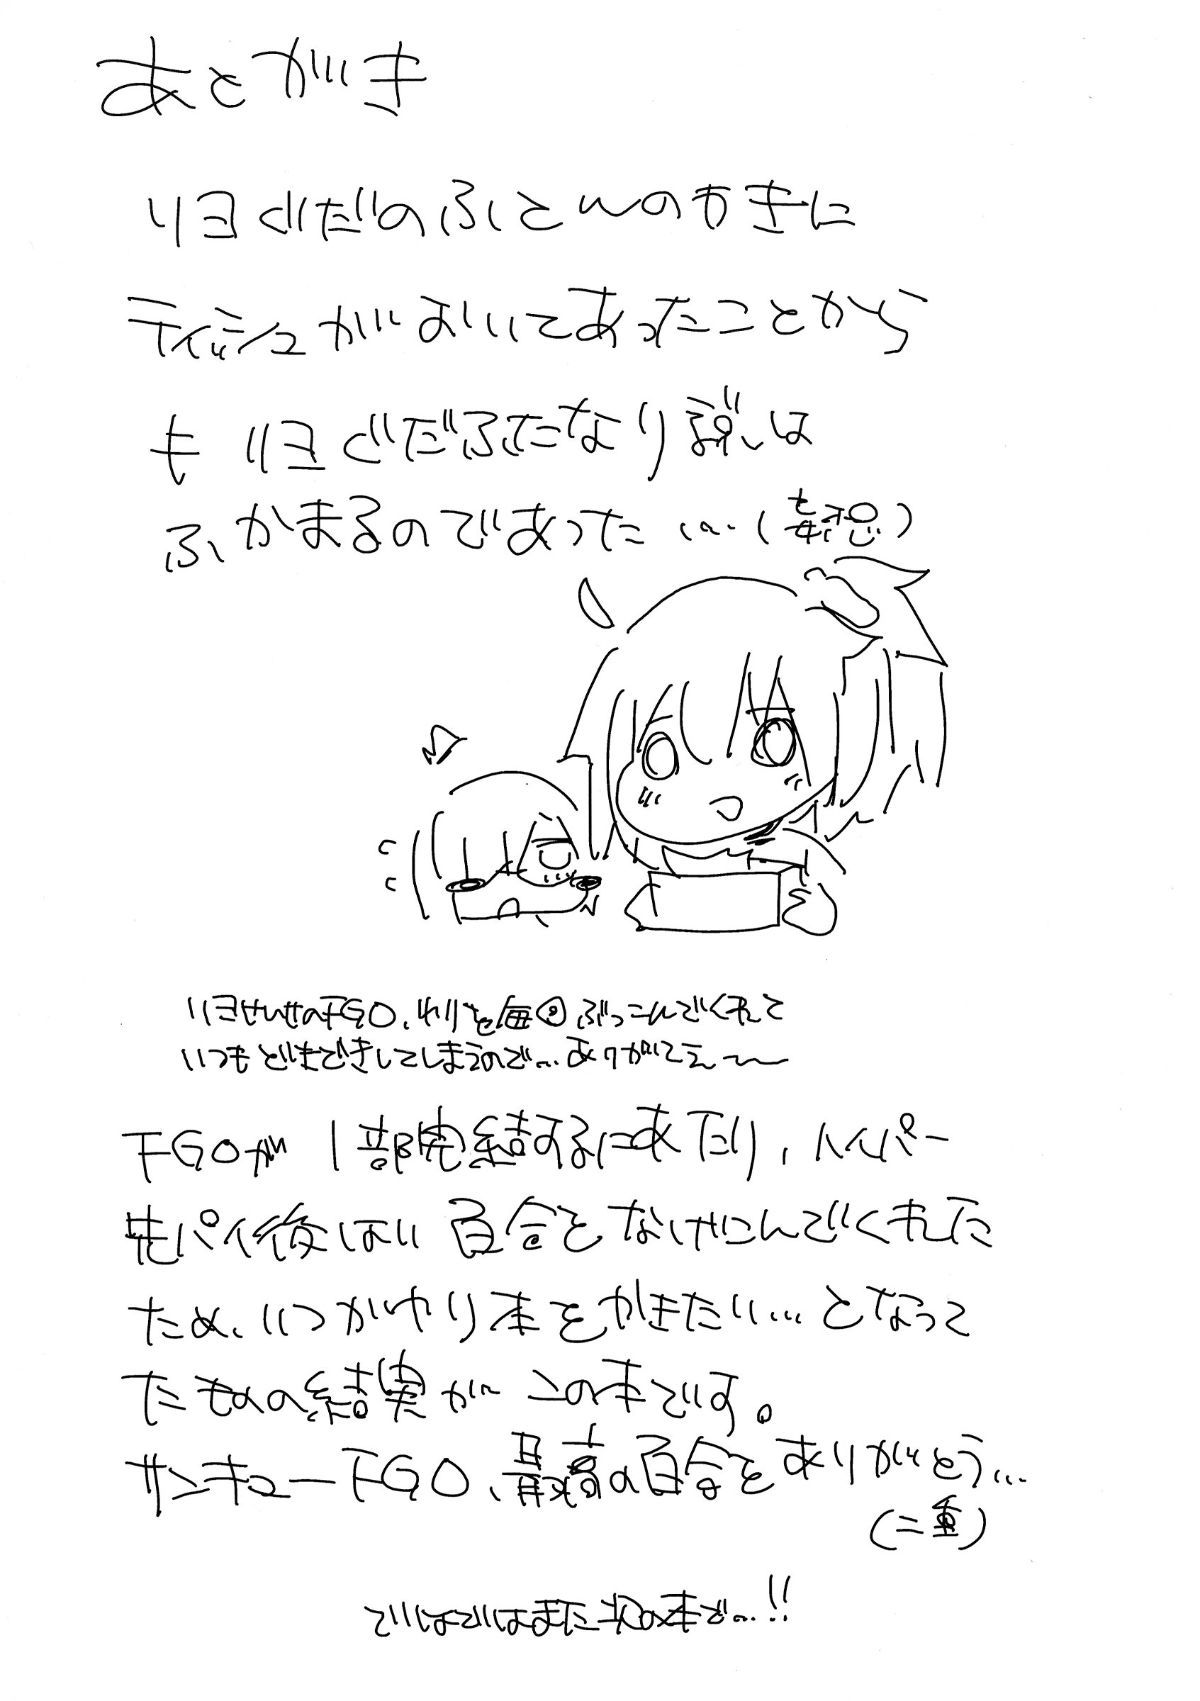 あとがき
リヨぐだのふとんのわきに
ティッシュがおいてあったことから
も リヨぐだふたなり説は
ふかまるのであった…(妄想)
リヨせんせのFGO、わりと毎回ぶっこんでくれて
いつもどぎまぎしてしまうので…ありがてえ〜
FGOが1部完結するにあたり、ハイパー
先パイ後はい百合をなげこんでくれた
ため、いつかやり本をかきたい…となって
たものの結果がこの本です。
サンキューFGO、最高の百合をありがとう…
(二重)
ではではまた次の本で…!!